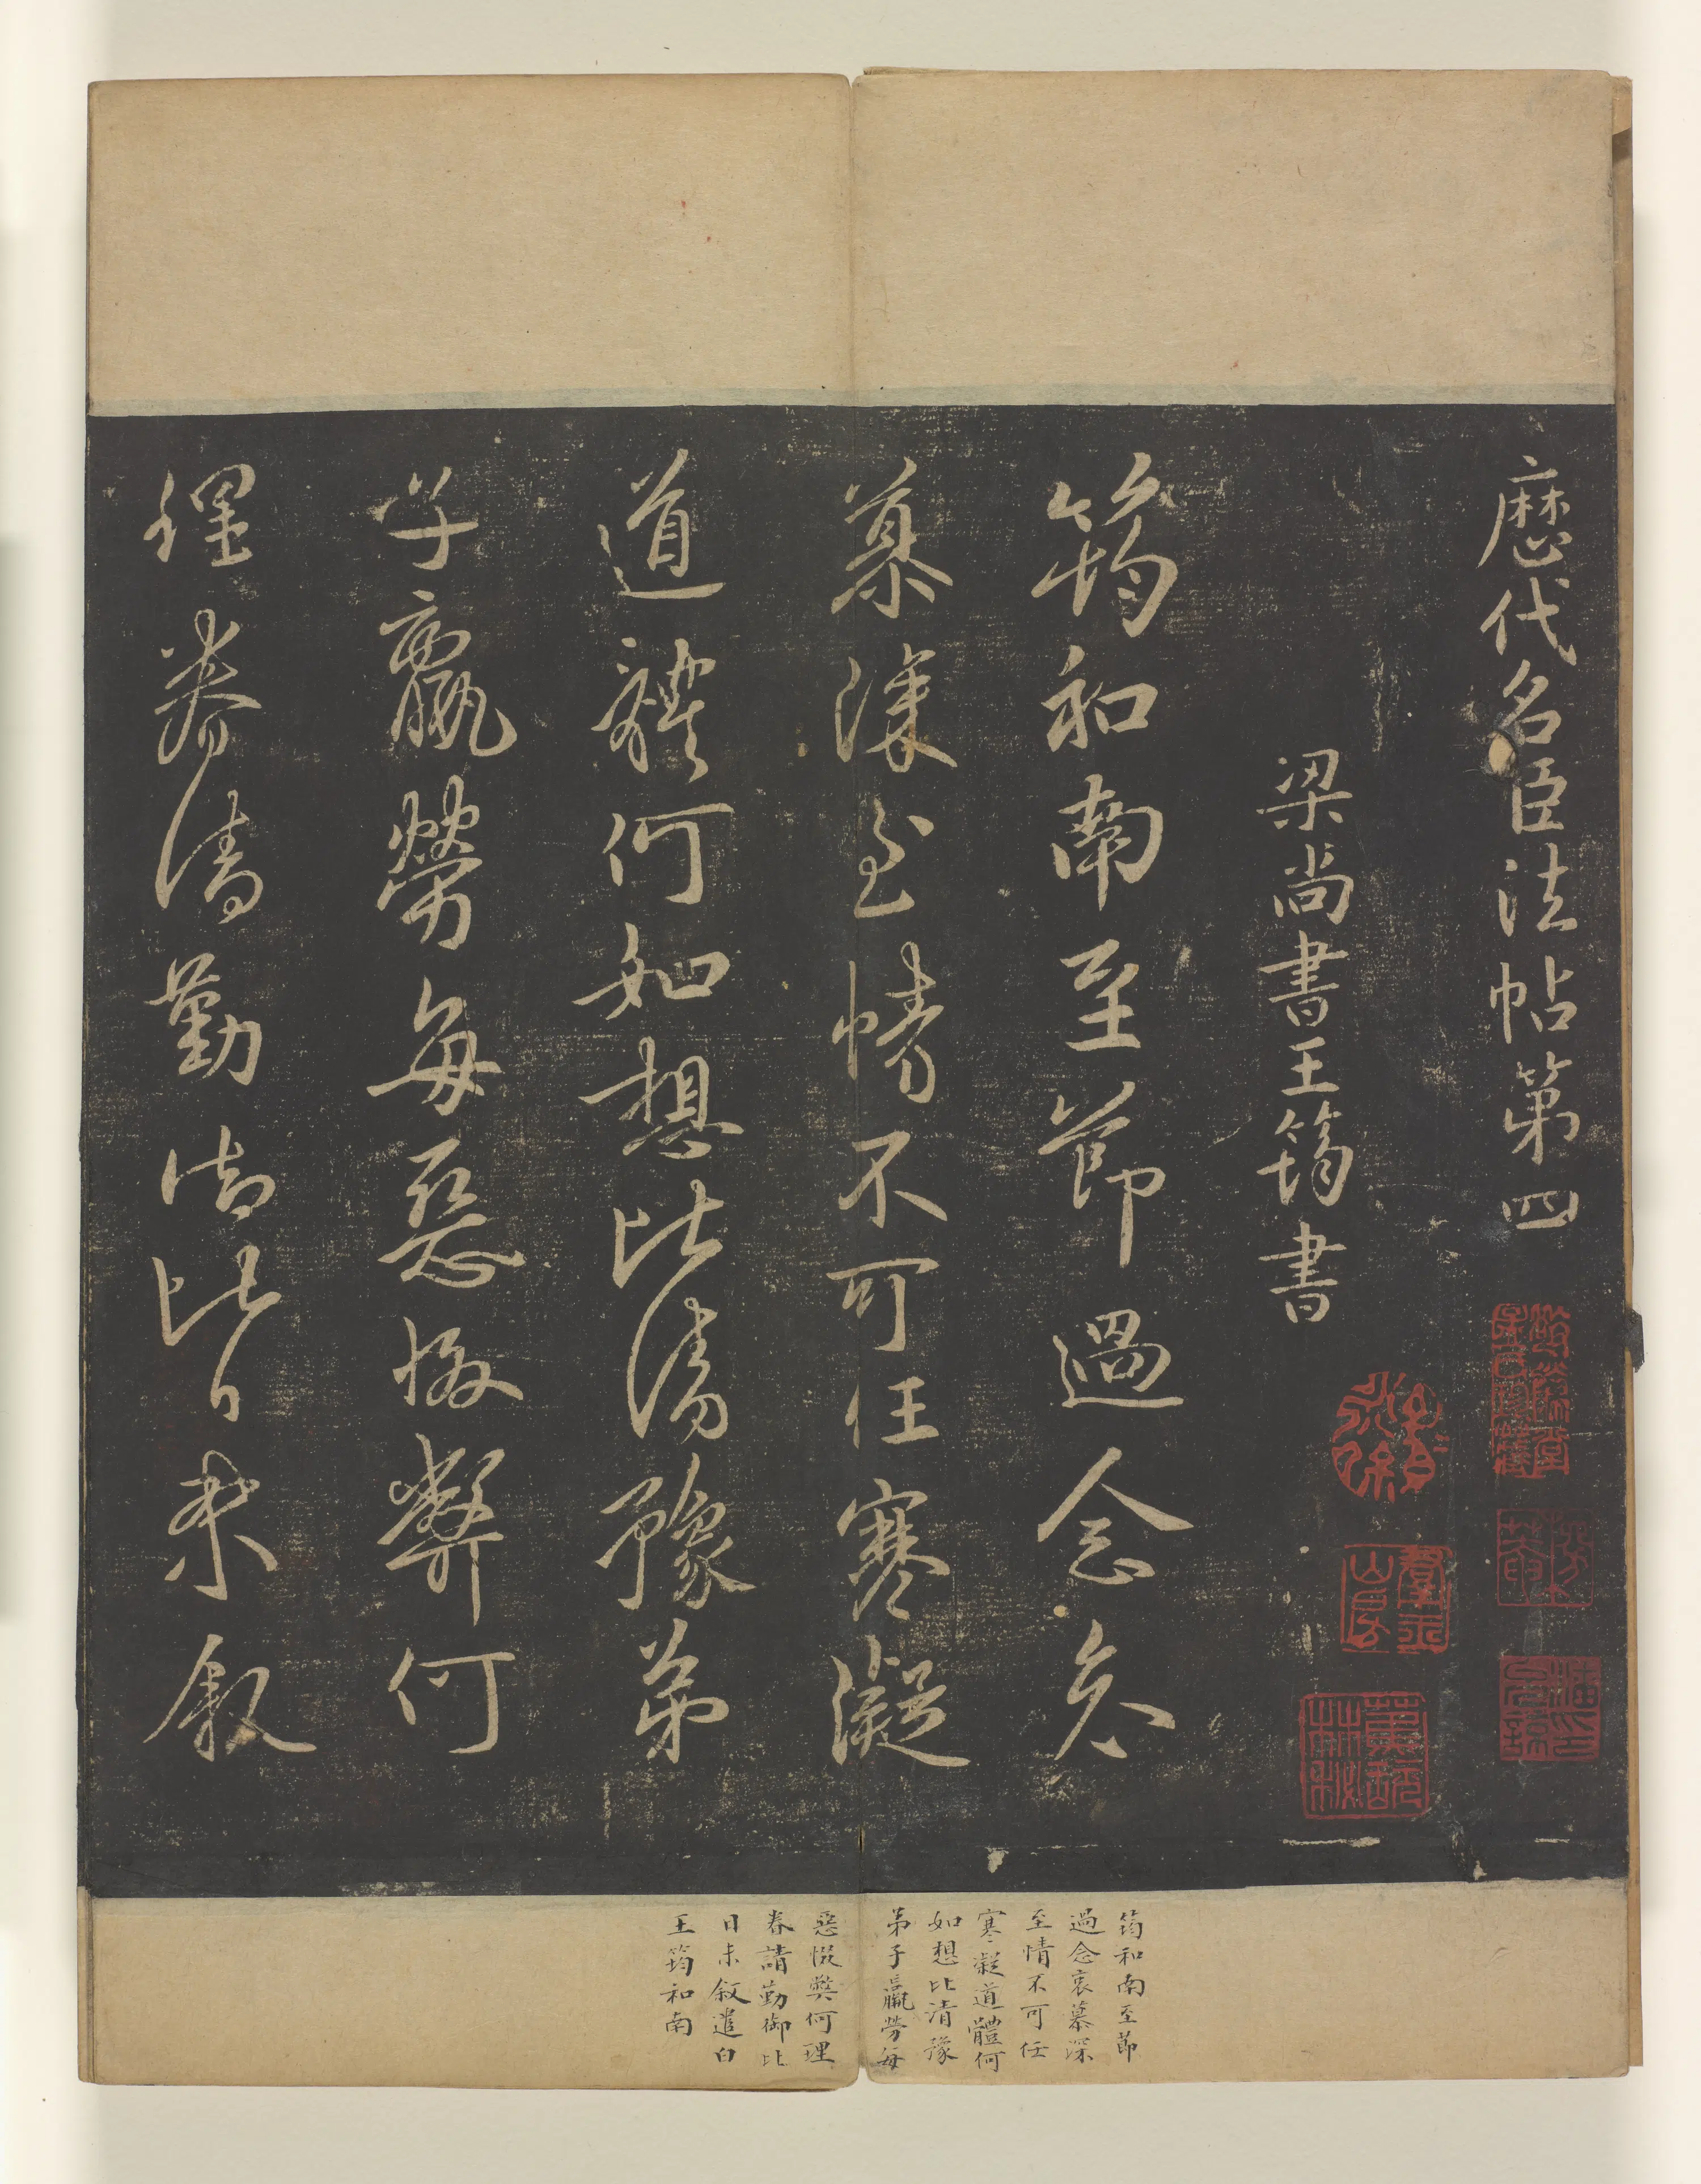 歷代名臣法帖第四
梁尚書王筠書
筠和南至節過念哀
慕深至情不可任寒凝
道體何如想比清豫弟
子羸勞每惡惙弊何
理眷請勤御比日未叙
筠和南至節
過念哀慕深
至情不可任
寒凝道體何
如想比清豫
弟子羸勞每
惡惙弊何理
眷請勤御比
日未叙遣白
王筠和南